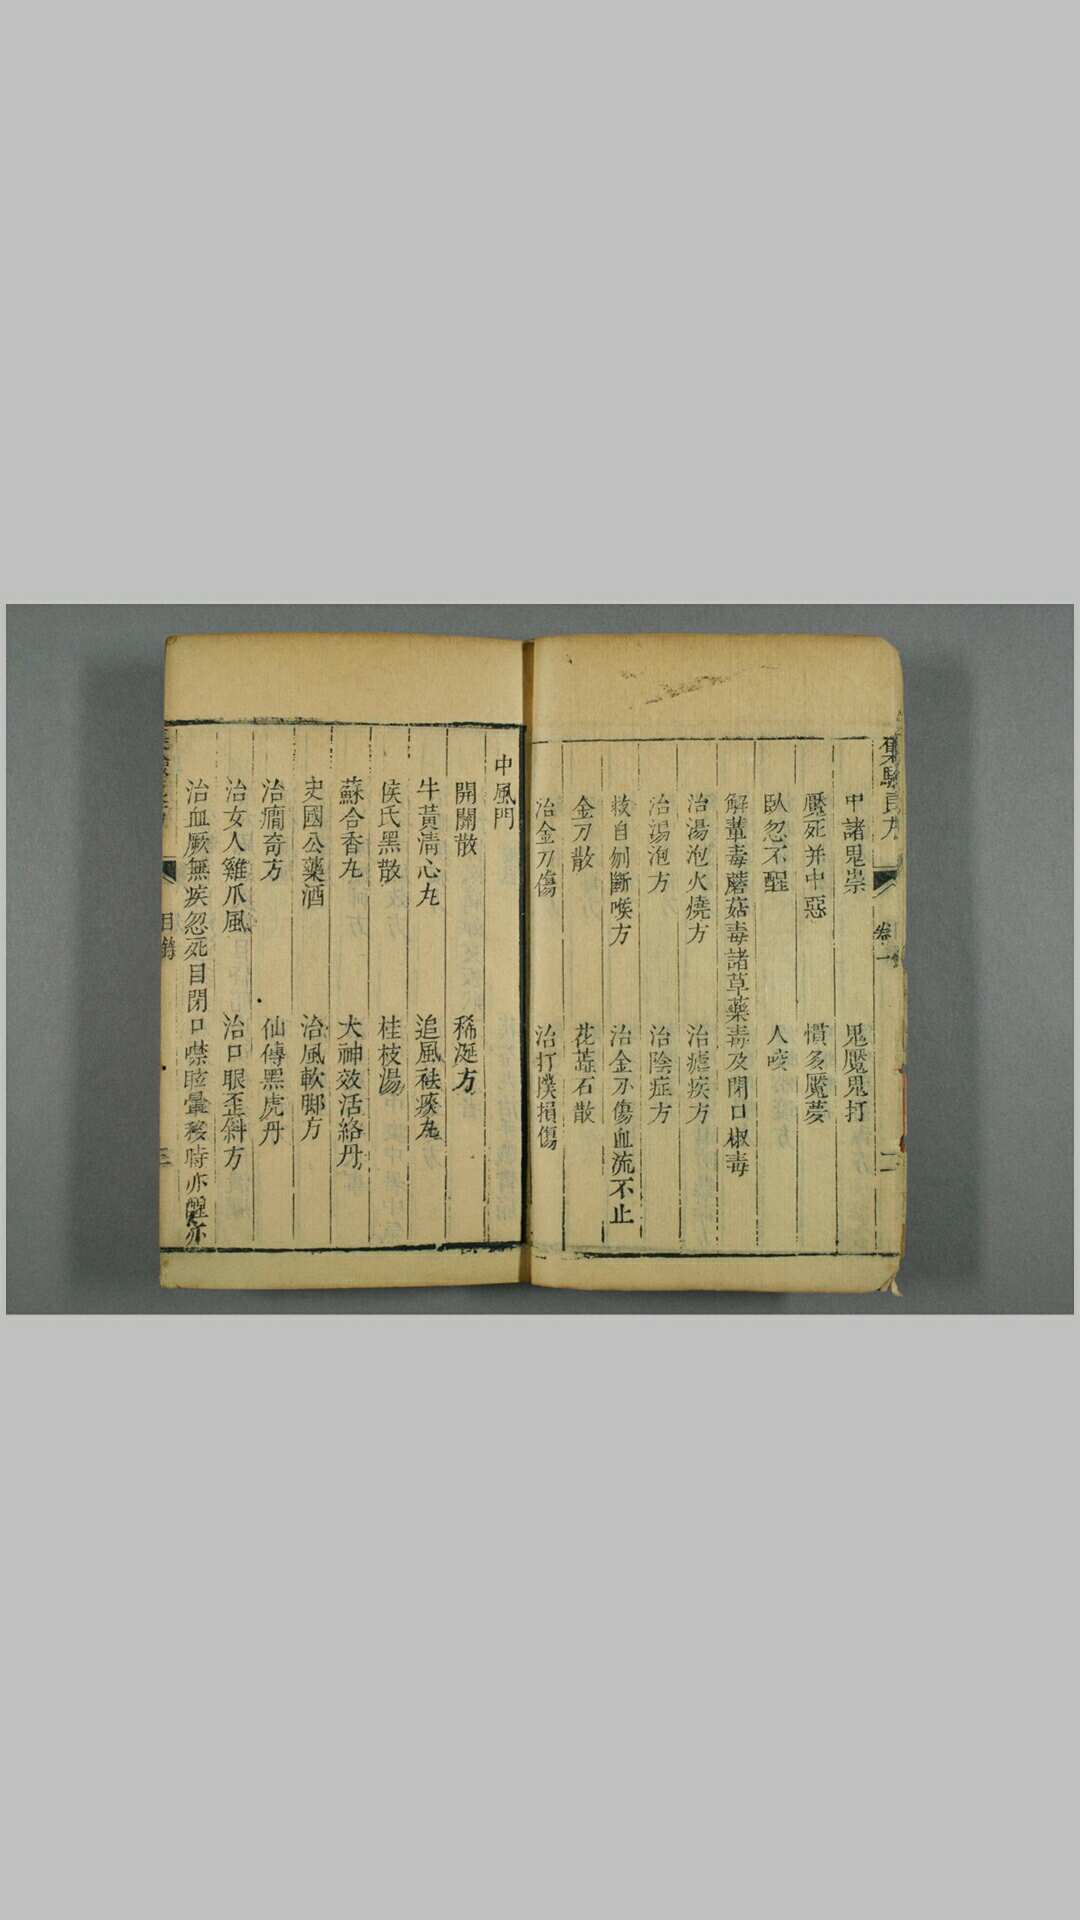 集驗良方
卷一
二
中諸鬼祟　鬼魘鬼打
魘死并中惡　慣多魘夢
臥忽不醒　人咬
解蕈毒蘑菇毒諸草藥毒及閉口椒毒
治湯泡火燒方　治瘧疾方
治湯泡方　治陰症方
救自刎斷喉方　治金刀傷血流不止
金刀散　花蕋石散
治金刀傷　治打撲損傷
中風門
開關散　稀涎方
牛黃淸心丸　追風祛痰丸
侯氏黑散　桂枝湯
蘇合香丸　大神效活絡丹
史國公藥酒　治風軟脚方
治癇奇方　仙傳黑虎丹
治女人雞爪風　治口眼歪斜方
治血厥無疾忽死目閉口噤眩暈移時亦醒亦
目錄
三